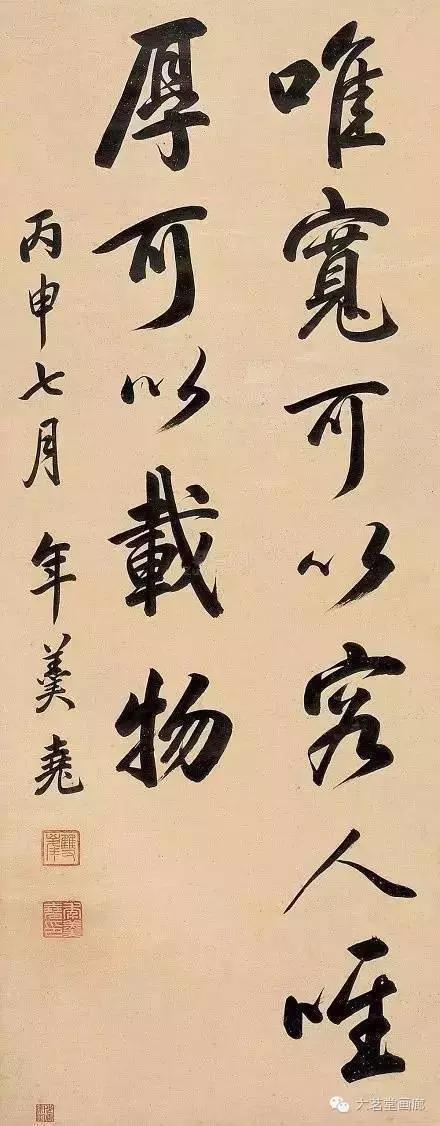 唯寬可以容人唯
厚可以載物
丙申七月 年羹堯
大茗堂画廊